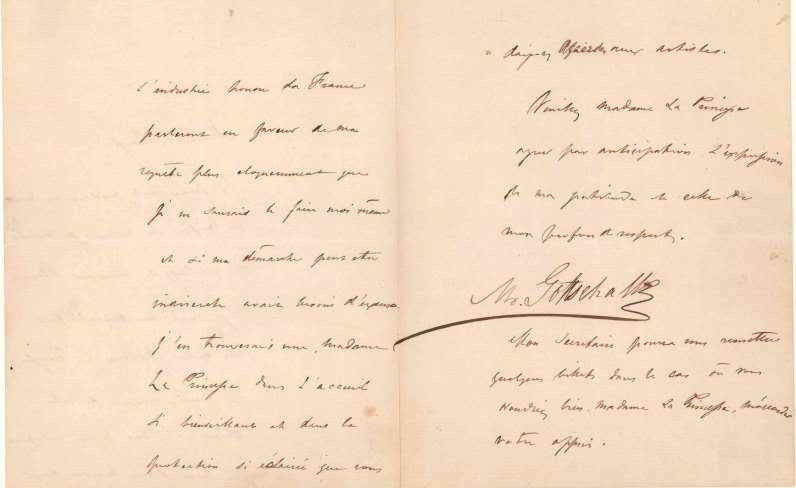 L'industrie honore la France
parleront en faveur de ma
requête plus eloquemment que
je ne saurais le faire moi même
et si ma démarche peut etre
indiscrete avait besoin d'excuse
j'en trouverais une, madame
La Princesse dans l'accueil
si bienveillant et dans la
protection si éclairée que vous
daignez aux artistes.
Veuillez madame La Princesse
agreer par anticipation l'expression
de ma gratitude et celle de
mon profond respect.
Mr. Gottschalk
Mon Secretaire pourra vous remettre
quelques billets dans le cas où vous
voudriez bien, madame La Princesse, m'accorder
votre appui.